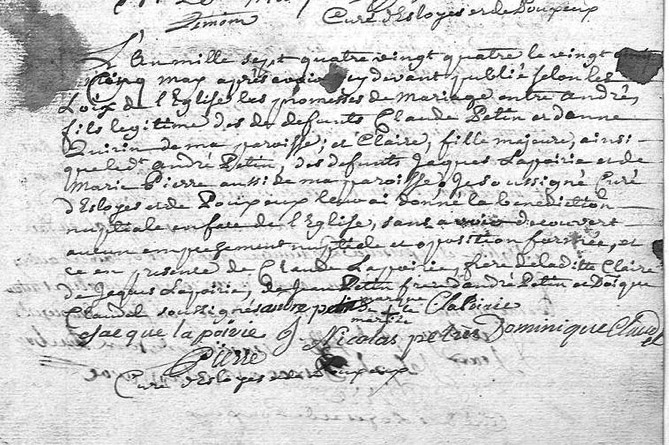 Simonin Curé d'Esloyes et de Pouxeux
L'an mille sept quatre vingt quatre le vingt
Cinq may après avoir cy devant publié selon les
Loix de l'Eglise les promesses de Mariage entre andré,
fils legitime des defunts Claude Petin et d'anne
Quirin de ma paroisse; et Claire, fille majeure, ainsi
que led. andré Petin, des defunts Jacques Lapoirie et de
Marie Pierre aussi de ma paroisse, Je soussigné Curé
d'Esloyes et de Pouxeux leur ai donné la bénédiction
nuptiale en face de l'Eglise, sans avoir decouvert
aucun empeschement nuptiale et oposition formée, et
ce en presence de Claude Lapoirie, frère de laditte Claire
de Jaques Lapoirie, de Jean Petin frere d'andré Petin et Do~ique
Claudel soussignés andre petin marque de Cla Poirie
Jacque la poirie Nicolas petres Dominique Claudel
Pierre
Curé d'Esloyes et de Pouxeux